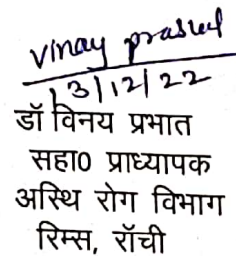 vinay prabhat
13/12/22
डॉ विनय प्रभात
सहा0 प्राध्यापक
अस्थि रोग विभाग
रिम्स, रॉची